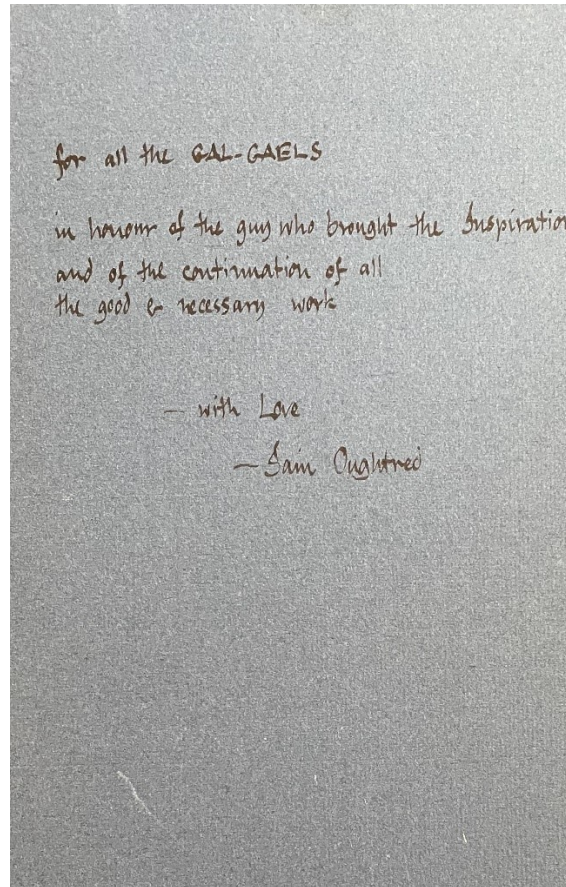 for all the GAL-GAELS
in honour of the guy who brought the Inspiration
and of the continuation of all
the good & necessary work
– with Love
– Iain Oughtred